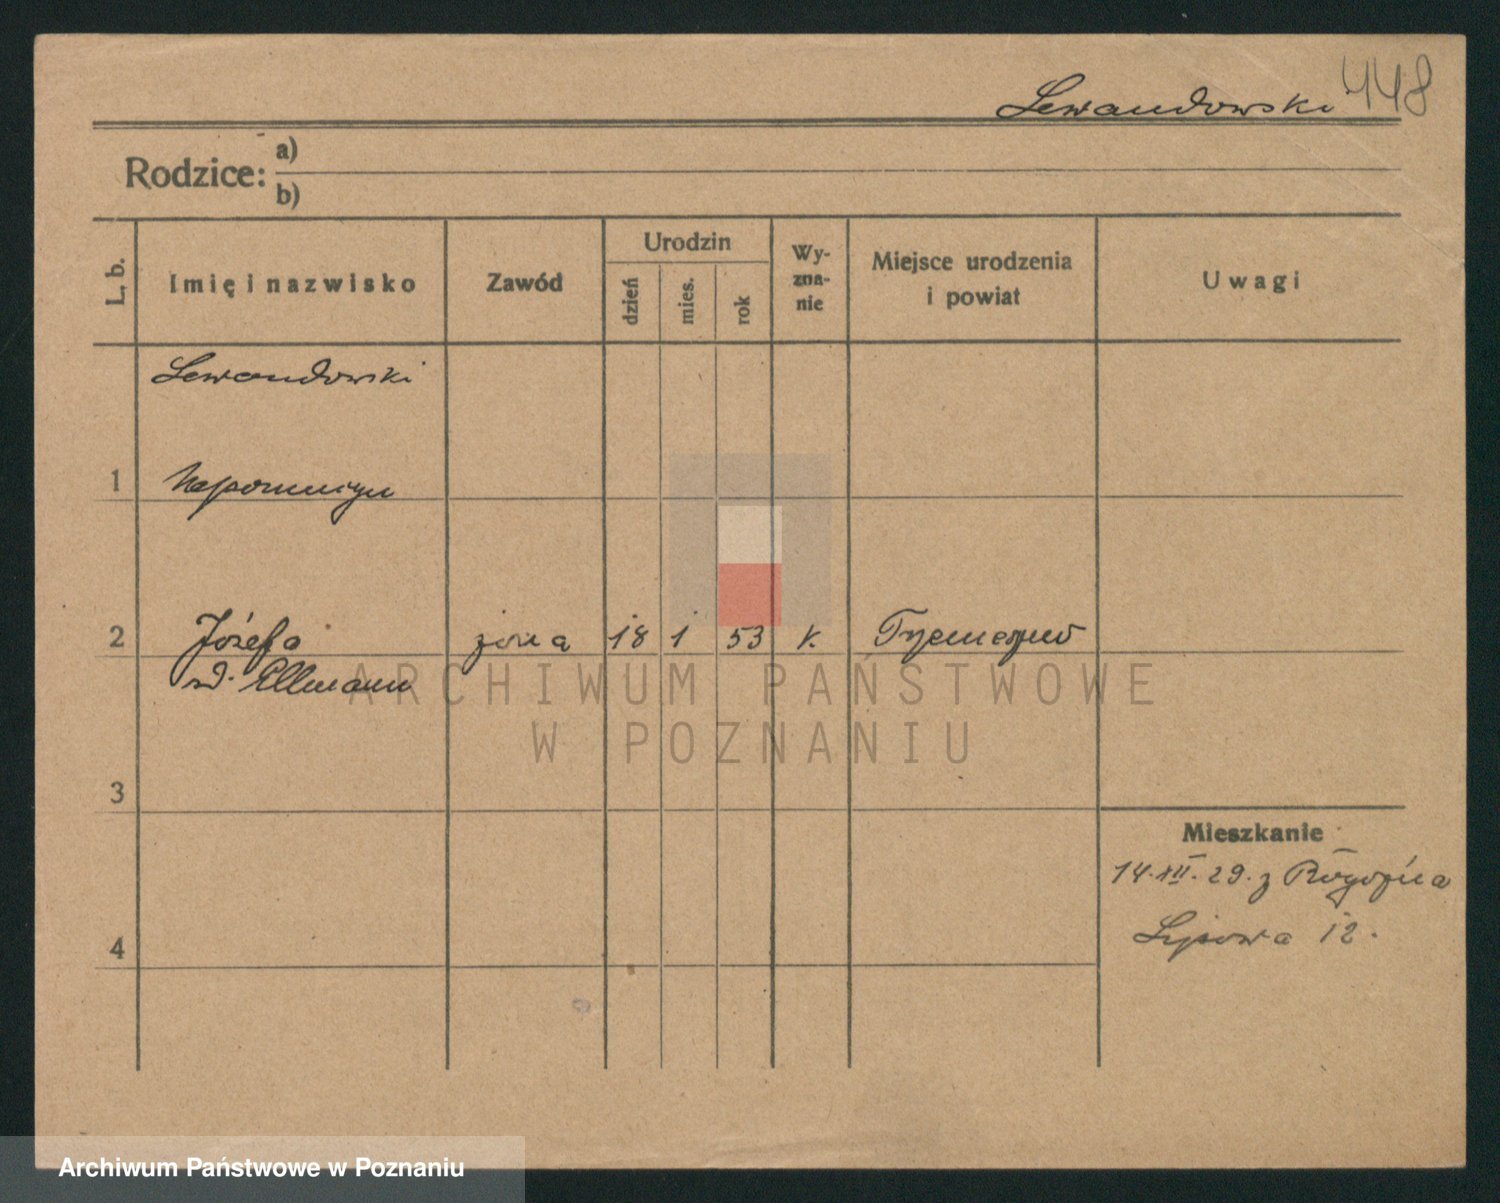 Lewandowski 448
Rodzice: a)
b)
L. b.
Imię i nazwisko
Zawód
Urodzin
dzień
mies.
rok
Wy-
zna-
nie
Miejsce urodzenia
i powiat
Uwagi
Lewandowski
1 Nepomucyn
2 Józefa żona 18 1 53 k. Trzemeszno
d. Ellmann
ARCHIWUM PAŃSTWOWE
W POZNANIU
3
Mieszkanie
14.XII.29. z Rogoźna
Lipowa 12.
4
Archiwum Państwowe w Poznaniu